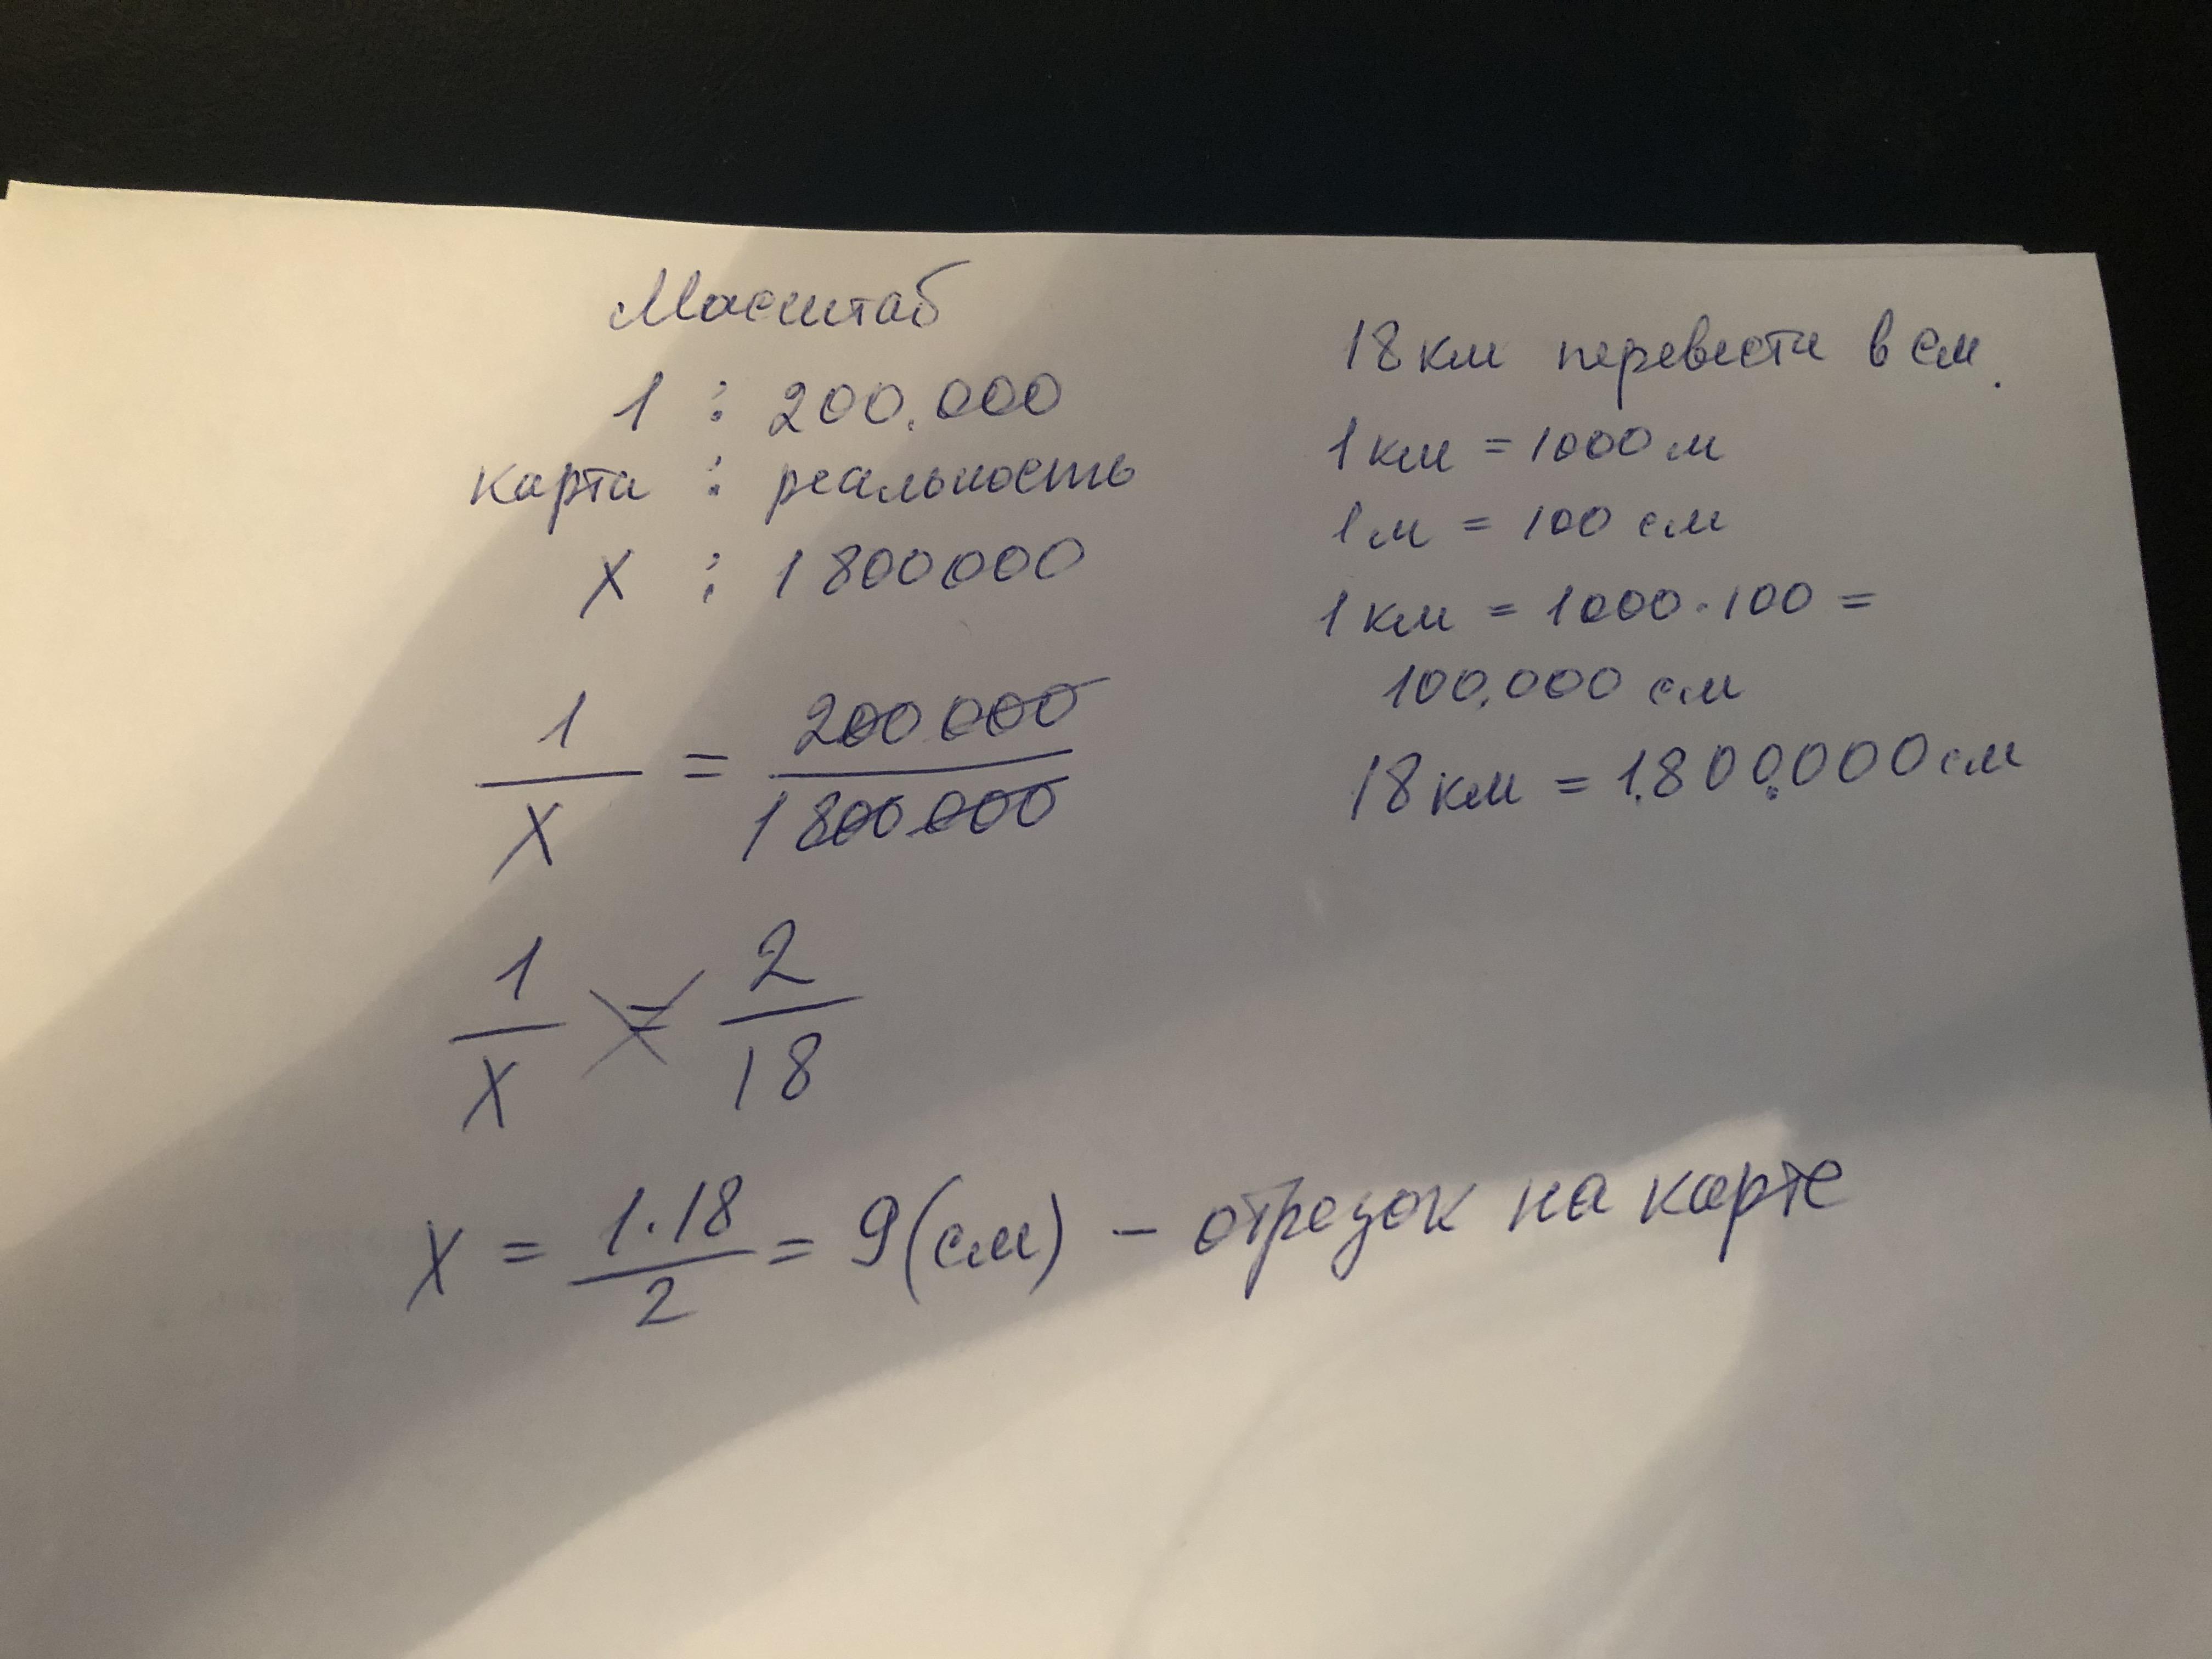 Масштаб
1 : 200.000
карта : реальность
X : 1800000
1/X = 200000/1800000
1/X = 2/18
X = 1·18/2 = 9(см) – отрезок на карте
18км перевести в см.
1км = 1000м
1м = 100 см
1км = 1000·100 =
100.000 см
18км = 1.800.000см